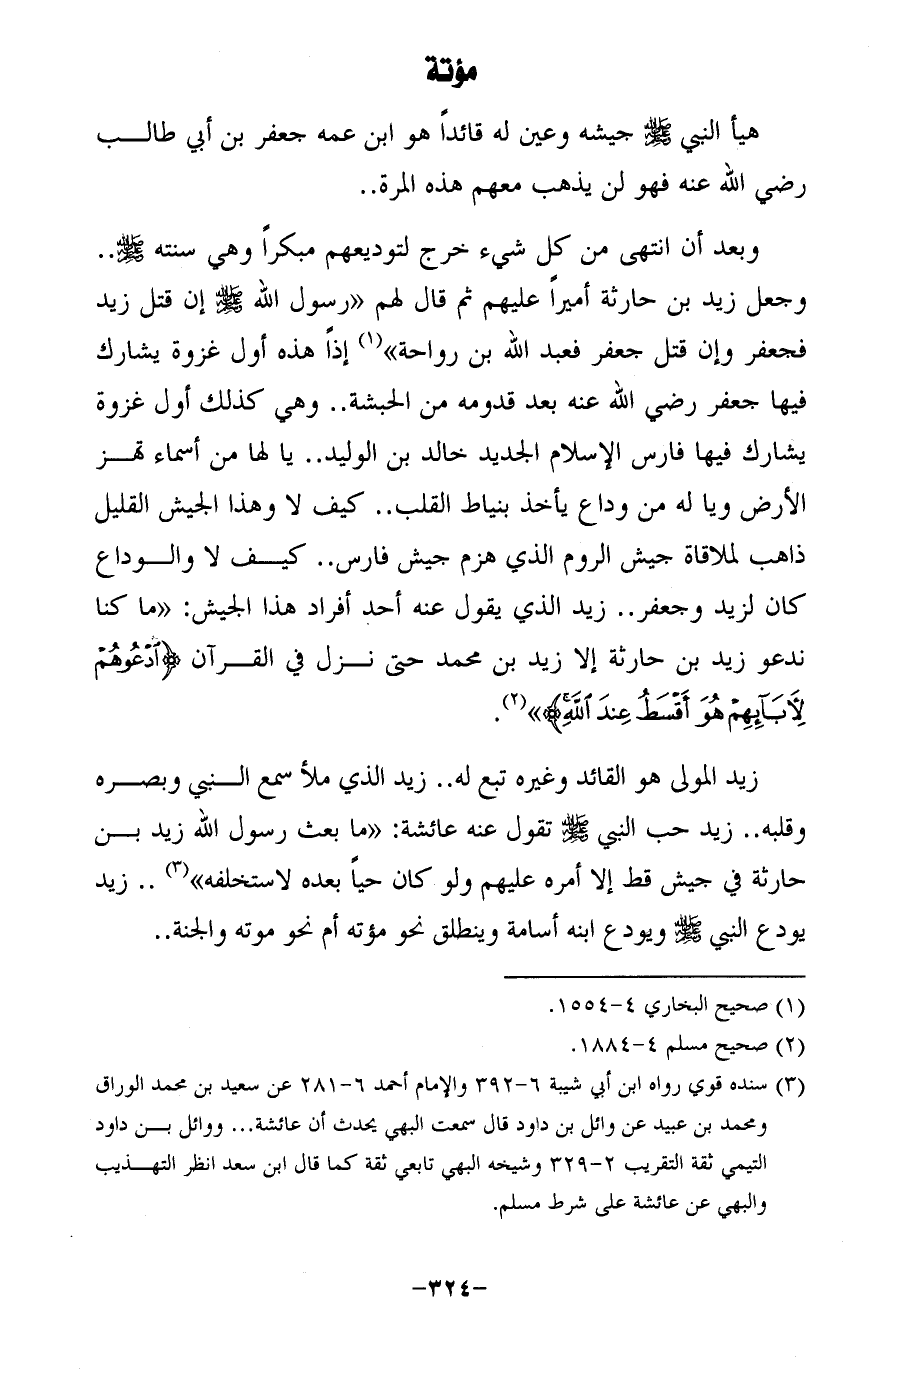 مؤتة
هيأ النبي ﷺ جيشه وعين له قائداً هو ابن عمه جعفر بن أبي طالـــب
رضي الله عنه فهو لن يذهب معهم هذه المرة..
وبعد أن انتهى من كل شيء خرج لتوديعهم مبكراً وهي سنته ﷺ..
وجعل زيد بن حارثة أميراً عليهم ثم قال لهم «رسول الله ﷺ إن قتل زيد
فجعفر وإن قتل جعفر فعبد الله بن رواحة»(١) إذاً هذه أول غزوة يشارك
فيها جعفر رضي الله عنه بعد قدومه من الحبشة.. وهي كذلك أول غزوة
يشارك فيها فارس الإسلام الجديد خالد بن الوليد.. يا لها من أسماء تهـــز
الأرض ويا له من وداع يأخذ بنياط القلب.. كيف لا وهذا الجيش القليل
ذاهب لملاقاة جيش الروم الذي هزم جيش فارس.. كيـــف لا والـــوداع
كان لزيد وجعفر.. زيد الذي يقول عنه أحد أفراد هذا الجيش: «ما كنا
ندعو زيد بن حارثة إلا زيد بن محمد حتى نـــزل في القـــرآن ﴿ٱدْعُوهُمْ
لِأَبَآئِهِمْ هُوَ أَقْسَطُ عِندَ ٱللَّهِۚ﴾»(٢).
زيد المولى هو القائد وغيره تبع له.. زيد الذي ملأ سمع الـــنبي وبصـــره
وقلبه.. زيد حب النبي ﷺ تقول عنه عائشة: «ما بعث رسول الله زيد بـــن
حارثة في جيش قط إلا أمره عليهم ولو كان حياً بعده لاستخلفه»(٣) .. زيد
يودع النبي ﷺ ويودع ابنه أسامة وينطلق نحو مؤته أم نحو موته والجنة..
(١) صحيح البخاري ٤-١٥٥٤.
(٢) صحيح مسلم ٤-١٨٨٤.
(٣) سنده قوي رواه ابن أبي شيبة ٦-٣٩٢ والإمام أحمد ٦-٢٨١ عن سعيد بن محمد الوراق
ومحمد بن عبيد عن وائل بن داود قال سمعت البهي يحدث أن عائشة... ووائل بـــن داود
التيمي ثقة التقريب ٢-٣٢٩ وشيخه البهي تابعي ثقة كما قال ابن سعد انظر التهـــذيب
والبهي عن عائشة على شرط مسلم.
-٣٢٤-